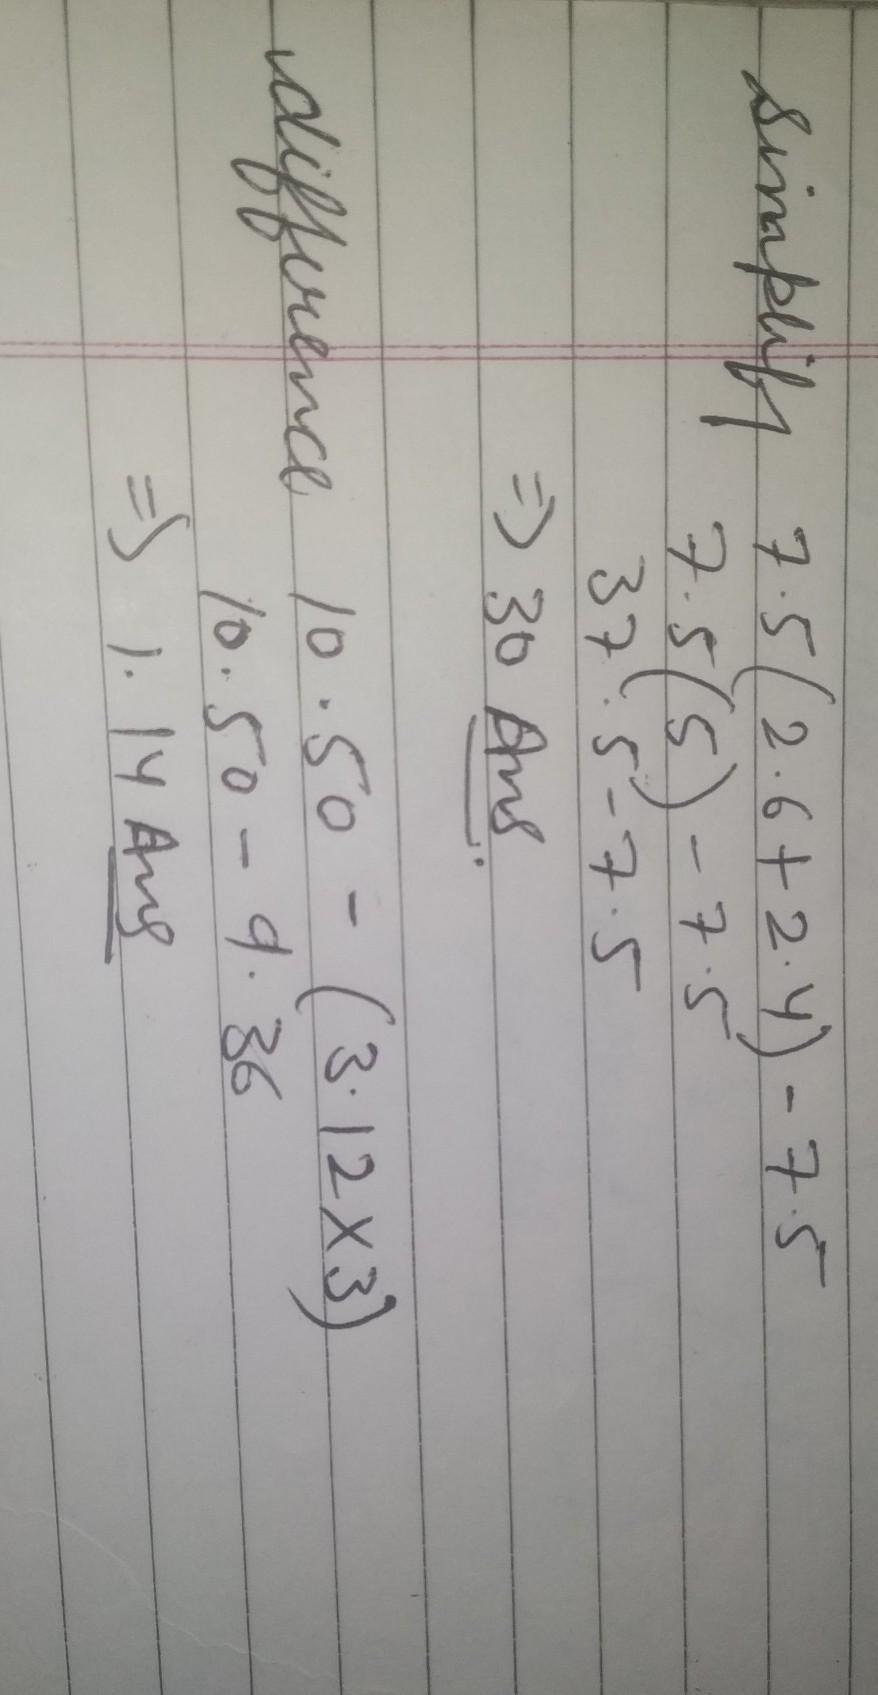 simplify 7.5(2.6+2.4)-7.5
7.5(5)-7.5
37.5-7.5
=> 30 Ans
difference 10.50 - (3.12×3)
10.50 - 9.36
=> 1.14 Ans